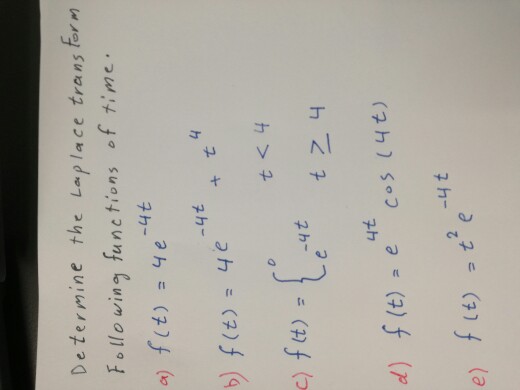 Determine the Laplace transform
Following functions of time.
a) f(t) = 4e^{-4t}
b) f(t) = 4e^{-4t} + t^4
c) f(t) = { 0 t < 4
e^{-4t} t ≥ 4
d) f(t) = e^{4t} cos(4t)
e) f(t) = t^2 e^{-4t}